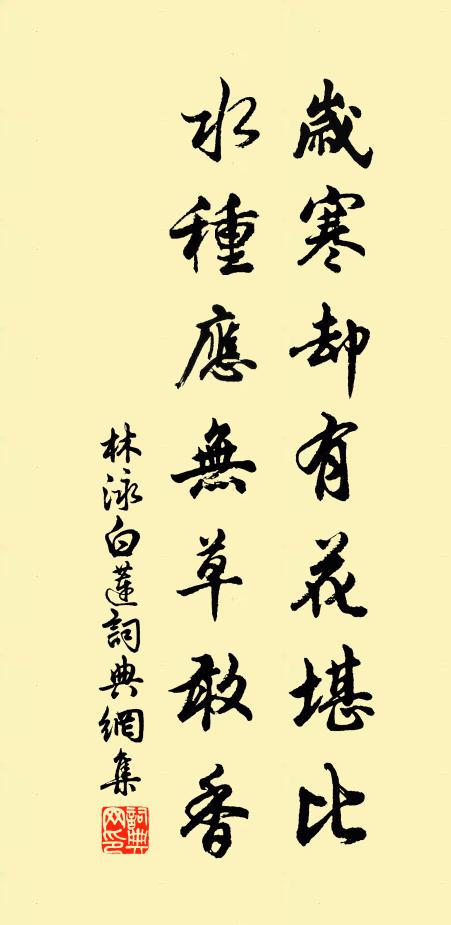 歲寒却有花堪比
水種應無草敢香
林泳白蓮詞典網集
詞典網印